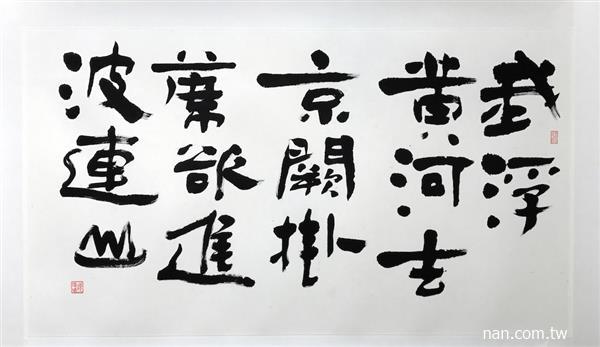 我浮
黃河去
京闕掛
席欲進
波連山
nan.com.tw